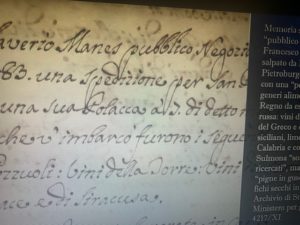 averio Manes pubblico Negozia
83. una spedizione per San
una sua Polacca a 3. di detto
che v'imbarcò furono i segue
Pozzuoli: Vini della Torre: Vini
ace e di Siracusa.
Memoria
"pubblico
Francesco
salpato da
Pietroburg
con una "po
generi alime
Regno da es
russa: vini d
del Greco e
siciliani, lim
Calabria e co
Sulmona "so
ricercati", ma
"pigne in gus
fichi secchi in
Archivio di St
Ministero per g
4217/XI